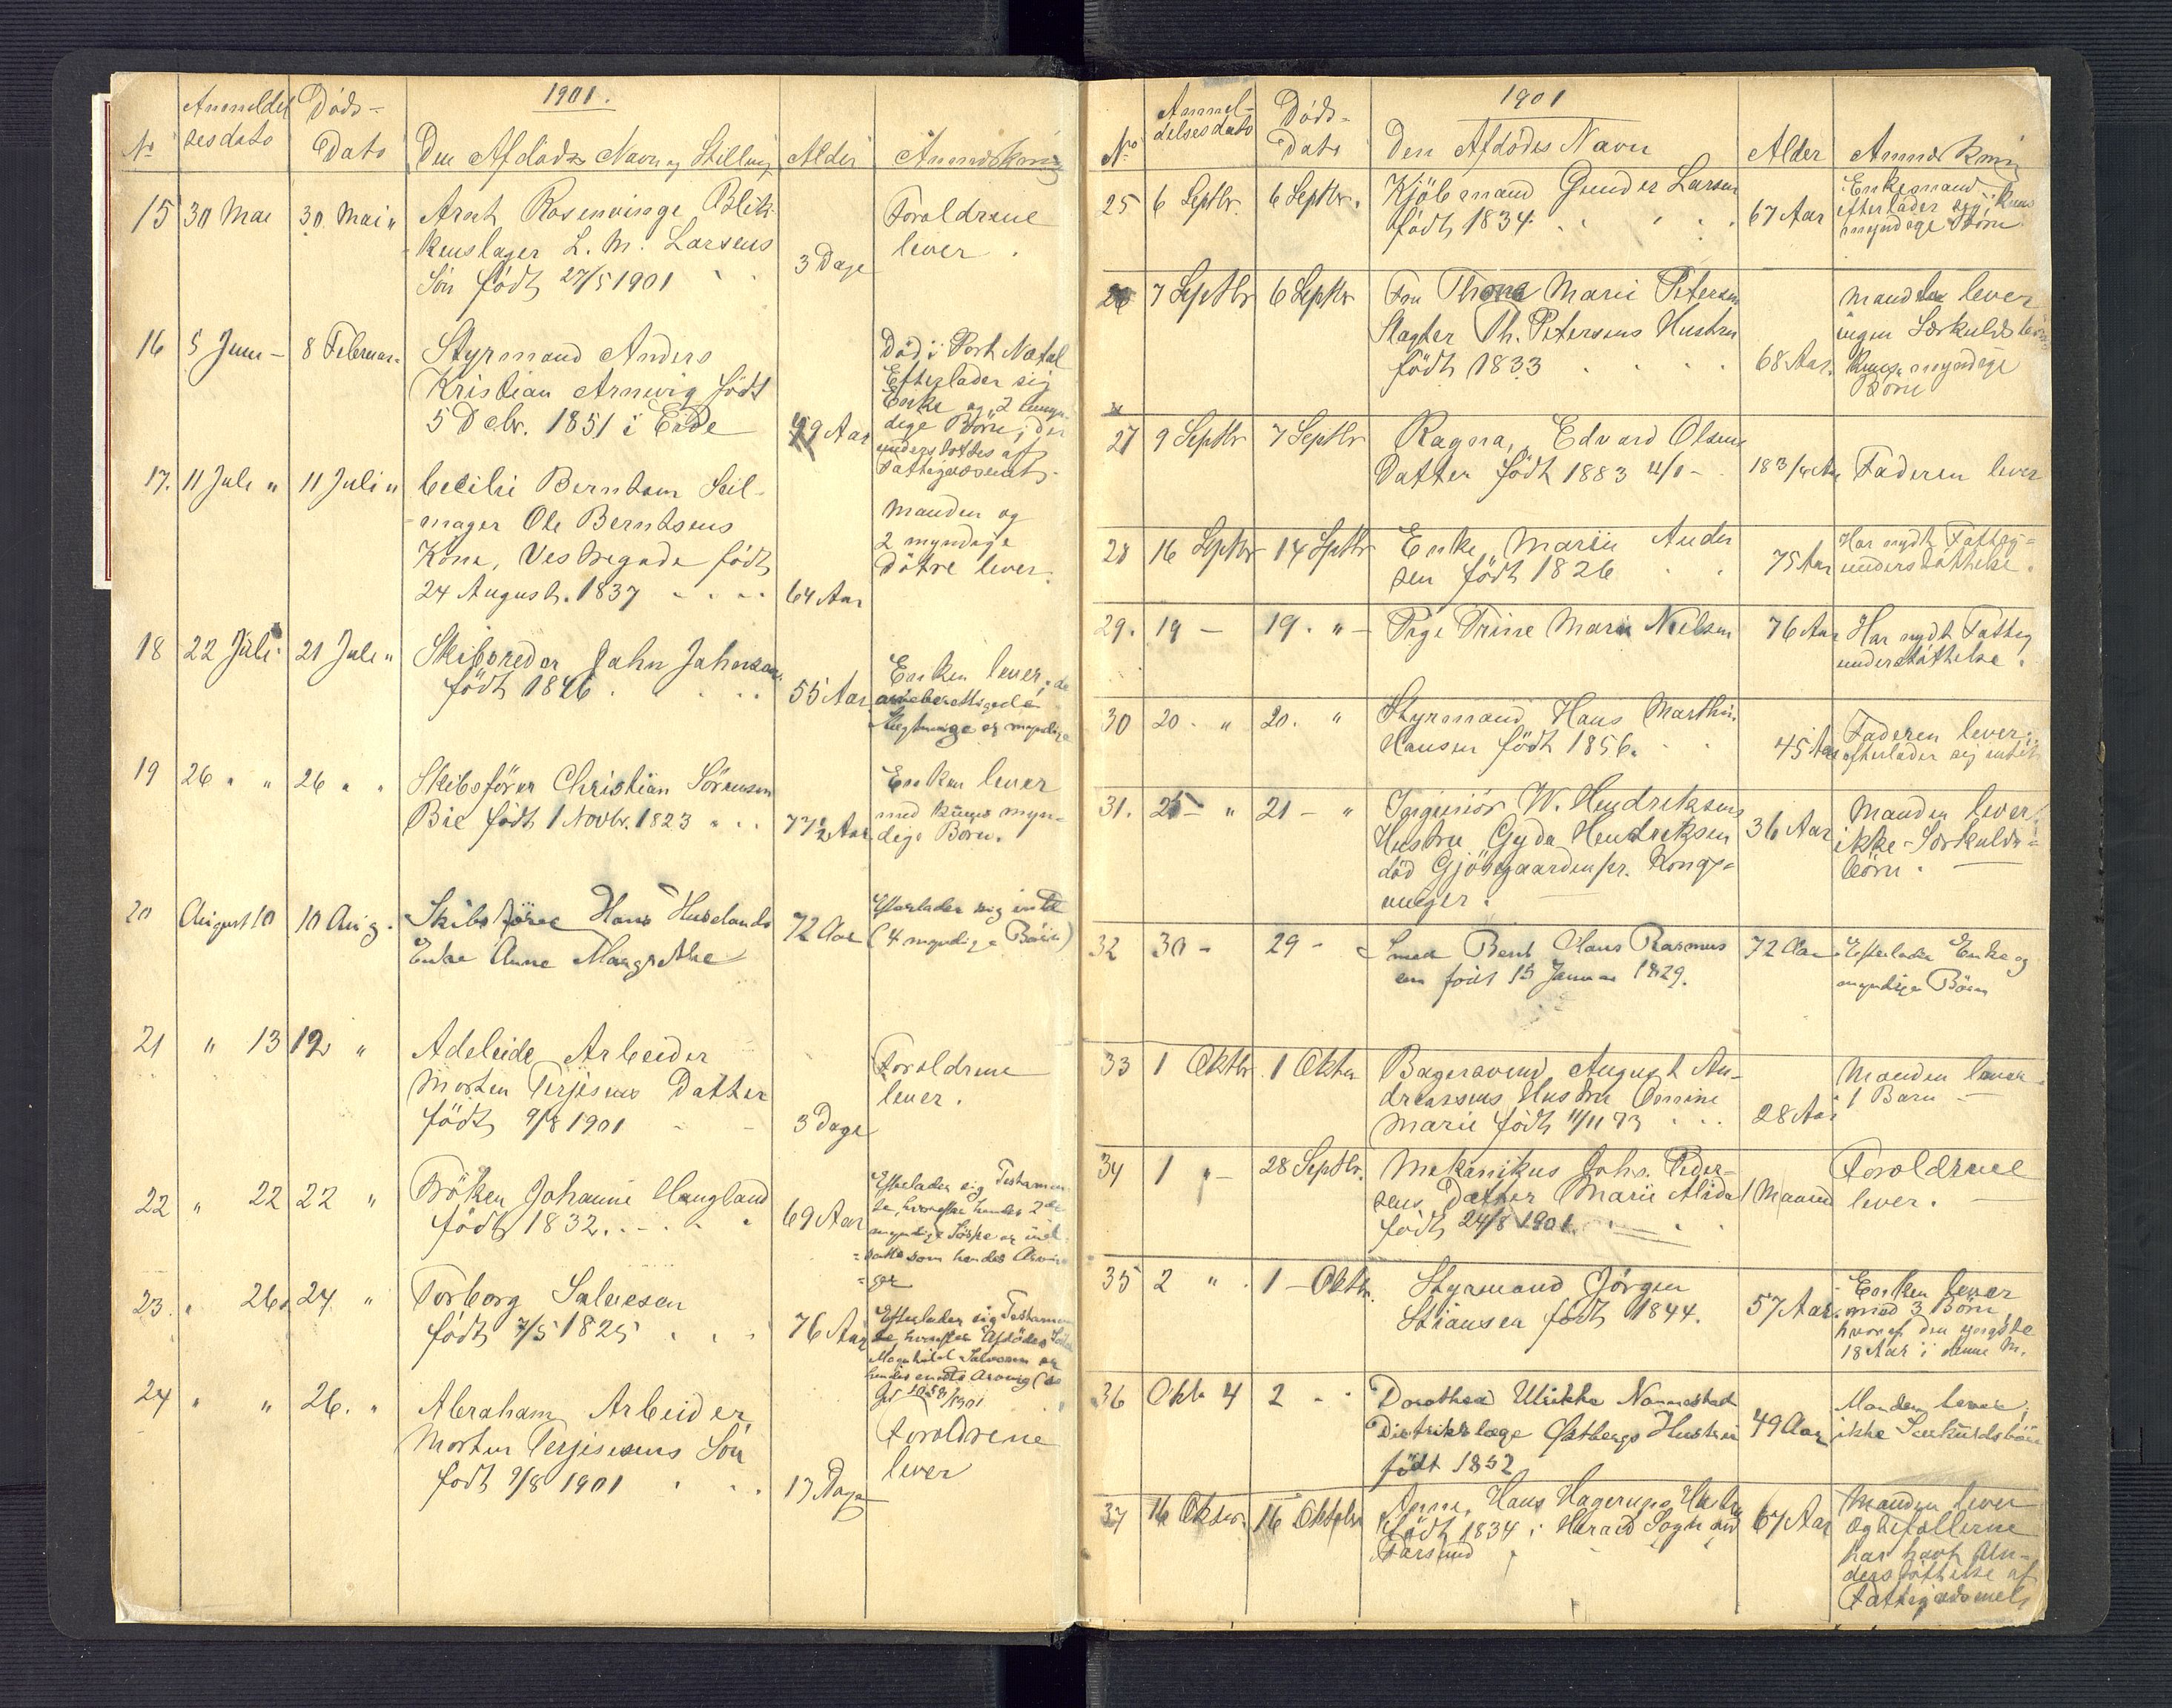 1901.
No Anmeldelsesdato Døds-Dato Den Afdødes Navn og Stilling Alder Anmærkning
15 30 Mai 30. Mai " Arnt Rosenvinge Blik- Forældrene
kenslager L. M. Larsens 3 Dage lever.
Søn født 27/5 1901
16 5 Juni - 8 Februar Styrmand Anders Død i Port Natal
Kristian Arnevig født Efterlader sig
5 Decbr. 1851 i Eide 49 Aar Enke og 2 umyn-
dige Børn; der
understøttes af
Fattigvæsenet.
17. 11 Juli " 11 Juli " Cecilie Berntsen Seil-
mager Ole Berntsens Manden og
Kone, Vestregade født 2 myndige
24 August. 1837 64 Aar Døtre lever.
18 22 Juli 21 Juli " Skibsreder John Johnsen Enken lever; de
født 1846. 55 Aar arveberettigede
Slegtninge er myndige
19 26 " " 26 " " Skibsfører Christian Sörensen Enken lever
Bie født 1 Novbr. 1823 77½ Aar med kuns myn-
dige Børn.
20 August 10 10 Aug. Skibsfører Hans Huselands 72 Aar Efterlader sig intet
Enke Anne Margrethe (4 myndige Børn)
21 " 13 12 " Adeleide Arbeider Forældrene
Morten Terjesens Datter lever.
født 9/8 1901 3 Dage
22 " 22 22 " Frøken Johanne Haugland Efterlader sig Testamen-
født 1832. 69 Aar te, hvorefter hendes 2de
myndige Söstre er ind-
satte som hendes Arvin-
ger
23. " 26. 24 " Torborg Salvesen Efterlader sig Testamen-
født 7/5 1825 76 Aar te, hvorefter Afdødes
Magnhild Salvesen er
hendes eneste Arving
24 " " 26. " Abraham Arbeider
Morten Terjesens Søn Forældrene
født 9/8 1901 17 Dage lever
1901
No Anmel-delsesdato Døds-Dato Den Afdødes Navn Alder Anmærkning
25 6 Septbr. 6 Septbr. Kjöbmand Gunder Larsen Enkemand
født 1834 67 Aar efterlader sig kuns
myndige Børn
26 7 Septbr 6 Septbr Fru Thona Marie Petersen Manden lever
Slagter Th. Petersens Hustru ingen Særkuldsbörn
født 1833 68 Aar. kuns myndige
Børn
27 9 Septbr 7 Septbr Ragna, Edvard Olsens
Datter født 1883 4/1 - 18 3/4 Aar Faderen lever
28 16 Septbr 14 Septbr Enke Marie Ander Har nydt Fattig-
sen født 1826 75 Aar understøttelse.
29. 19 - 19. " - Pige Trine Marie Nielsen 76 Aar Har nydt Fattig
understøttelse.
30 20. " 20. " Styrmand Hans Marthin Faderen lever;
Hansen født 1856. 45 Aar efterlader sig intet
31. 25 - " 21 - " Ingeniør W. Hendriksens Manden lever
Hustru Gyda Hendriksen 36 Aar ikke Særkulds-
død Gjösegaarden pr. Kongs- börn.
vinger.
32 30 - 29 - Smed Bent Hans Rasmus 72 Aar Efterlader Enke og
sen født 15 Januar 1829. myndige Börn
33 1 Oktbr. 1 Oktbr Bagersvend August An- Manden lever.
dreassens Hustru Oomine 1 Barn
Marie født 11/11 73 28 Aar
34 1 " - 28 Septbr. Mekanikus Johs. Peder- Forældrene
sens Datter Marie Alida 1 Maaned lever.
født 24/8 1901.
35 2 " 1 - Oktbr. Styrmand Jørgen Enken lever
Stiansen født 1844. 57 Aar. med 3 Børn,
hvoraf den yngste
18 Aar i denne M.
36 Okt. 4 2 - Dorothea Ulrikke Nannestad Manden lever;
Distriktslæge Östbergs Hustru 49 Aar ikke Særkuldsbörn
født 1852
37 16 Oktbr. 16 Oktobr Anne, Hans Hagerups Hustru Manden lever
født 1834 i Herad Sogn ved 67 Aar Ægtefollerne
Farsund har havt Un-
derstøttelse af
Fattigvæsenet